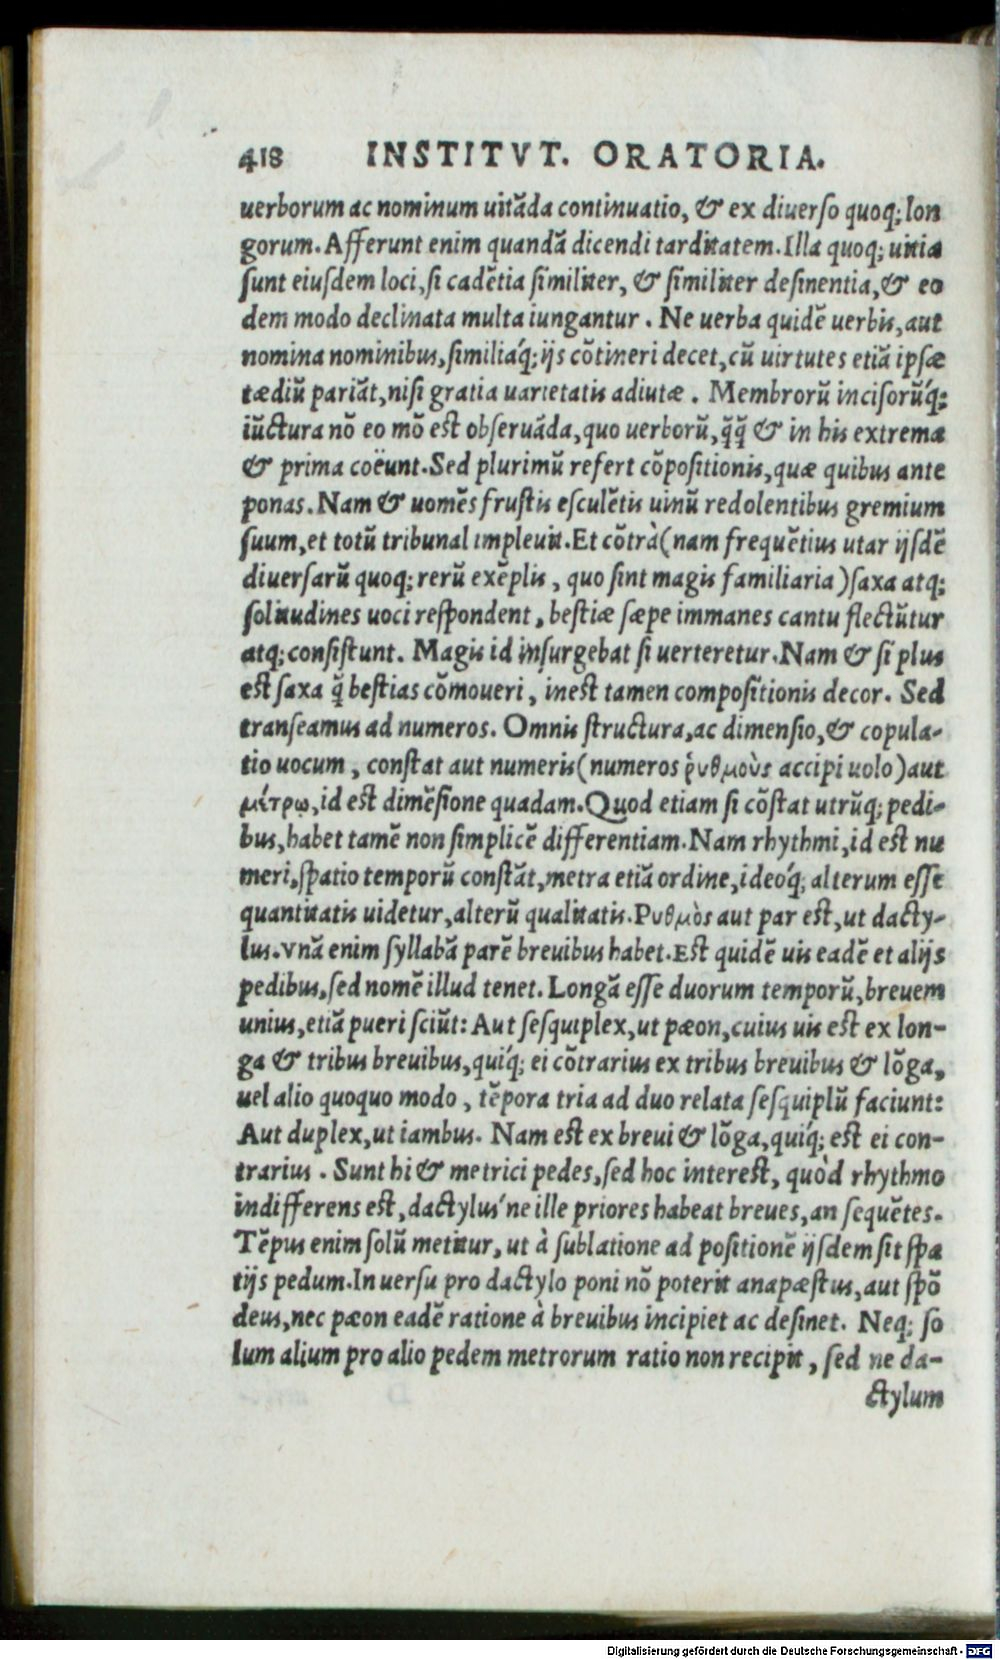 418 INSTITVT. ORATORIA.
uerborum ac nominum uitãda continuatio, & ex diuerſo quoq; lon
gorum. Afferunt enim quandã dicendi tarditatem. Illa quoq; uitia
ſunt eiuſdem loci, ſi cadẽtia ſimiliter, & ſimiliter deſinentia, & eo
dem modo declinata multa iungantur. Ne uerba quidẽ uerbis, aut
nomina nominibus, ſimiliáq; ijs cõtineri decet, cũ uirtutes etiã ipſæ
tædiũ pariãt, niſi gratia uarietatis adiutæ. Membrorũ inciſorũq́;
iũctura nõ eo mõ eſt obſeruãda, quo uerborũ, q̃q̃ & in his extrema
& prima coëunt. Sed plurimũ refert cõpoſitionis, quæ quibus ante
ponas. Nam & uomẽs fruſtis eſculẽtis uinũ redolentibus gremium
ſuum, et totũ tribunal impleuit. Et cõtrà (nam frequẽtius utar ijſdẽ
diuerſarũ quoq; rerũ exẽplis, quo ſint magis familiaria) ſaxa atq;
ſolitudines uoci reſpondent, beſtiæ ſæpe immanes cantu flectũtur
atq; conſiſtunt. Magis id inſurgebat ſi uerteretur. Nam & ſi plus
eſt ſaxa q̃ beſtias cõmoueri, ineſt tamen compoſitionis decor. Sed
tranſeamus ad numeros. Omnis ſtructura, ac dimenſio, & copula-
tio uocum, conſtat aut numeris (numeros ῥυθμοὺς accipi uolo) aut
μέτρῳ, id eſt dimẽſione quadam. Quod etiam ſi cõſtat utrũq; pedi-
bus, habet tamẽ non ſimplicẽ differentiam. Nam rhythmi, id eſt nu
meri, ſpatio temporũ conſtãt, metra etiã ordine, ideóq; alterum eſſe
quantitatis uidetur, alterũ qualitatis. Ρυθμὸς aut par eſt, ut dacty-
lus. Vnã enim ſyllabã parẽ breuibus habet. Eſt quidẽ uis eadẽ et alijs
pedibus, ſed nomẽ illud tenet. Longã eſſe duorum temporũ, breuem
unius, etiã pueri ſciũt: Aut ſeſquiplex, ut pæon, cuius uis eſt ex lon-
ga & tribus breuibus, quíq; ei cõtrarius ex tribus breuibus & lõga,
uel alio quoquo modo, tẽpora tria ad duo relata ſeſquiplũ faciunt:
Aut duplex, ut iambus. Nam eſt ex breui & lõga, quíq; eſt ei con-
trarius. Sunt hi & metrici pedes, ſed hoc intereſt, quòd rhythmo
indifferens eſt, dactylus´ne ille priores habeat breues, an ſequẽtes.
Tẽpus enim ſolũ metitur, ut à ſublatione ad poſitionẽ ijſdem ſit ſpa
tijs pedum. In uerſu pro dactylo poni nõ poterit anapæſtus, aut ſpõ
deus, nec pæon eadẽ ratione à breuibus incipiet ac deſinet. Neq; ſo
lum alium pro alio pedem metrorum ratio non recipit, ſed ne da-
ctylum
Digitalisierung gefördert durch die Deutsche Forschungsgemeinschaft - DFG